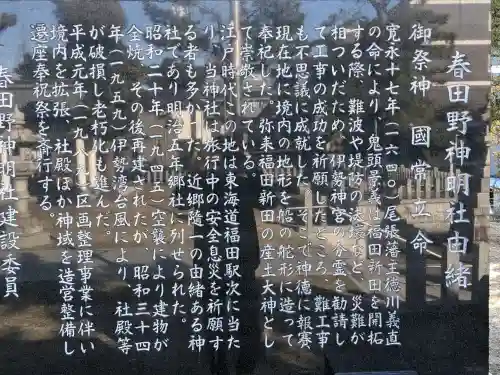 春田野神明社由緒
御祭神　國常立命
寛永十七年（一六四〇）尾張藩主徳川義直
の命により鬼頭景義は福田新田を開拓
する際、難波や堤防の決壊など、災難が
相ついだため、伊勢神宮の分霊を勧請し
て工事の成功を祈願したところ、難工事
も不思議に成就した。そこで神徳に報賽
現在地に境内の地形を船の舵形に造って
奉祀した。弥来福田新田の産土大神とし
て崇敬されている。
江戸時代この地は東海道福田駅次に当た
り、当神社は旅行中の安全息災を祈願す
る者も多かった。近郷随一の由緒ある神
社であり明治五年郷社に列せられた。
昭和二十年（一九四五）空襲により建物が
全焼、その後再建されたが、昭和三十四
年（一九五九）伊勢湾台風により、社殿等
が破損し老朽化も進んだ。
平成元年（一九八九）区画整理事業に伴い
境内を拡張、社殿ほか神域を造営整備し
遷座奉祝祭を斎行する。
春田野神明社建設委員